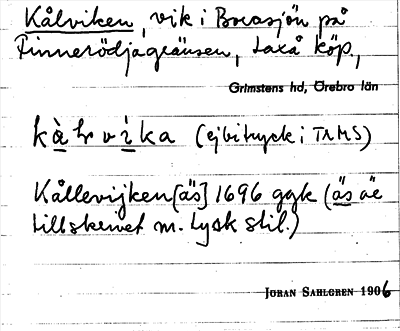 Kålviken, vik i Borasjön på
Finnerödjagränsen, Laxå köp.,
Grimstens hd, Örebro län
kàlvìka (ej bitryck i TAMS)
Kållevijken [äs] 1696 ggk (äs är
tillskrivet m. tysk stil.)
JÖRAN SAHLGREN 1906